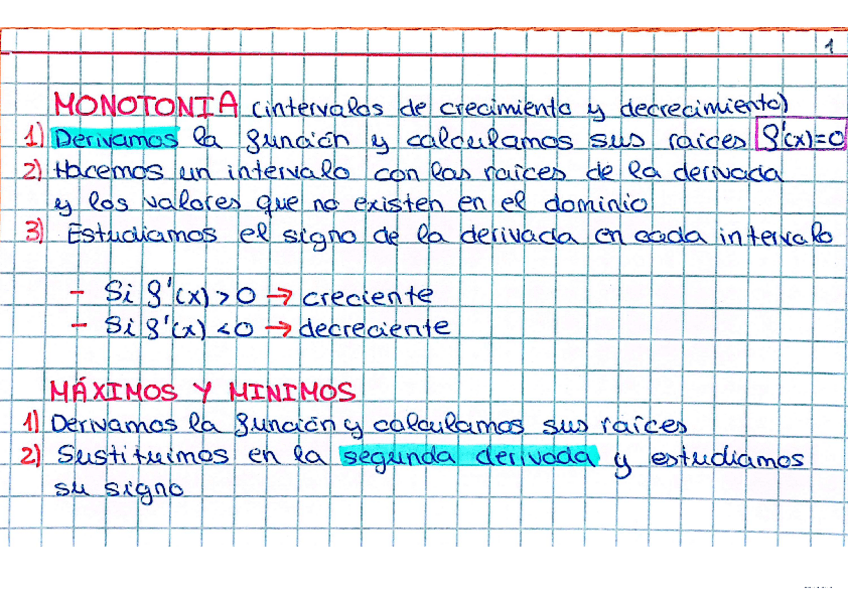 1
MONOTONIA (intervalos de crecimiento y decrecimiento)
1) Derivamos la función y calculamos sus raíces f'(x)=0
2) Hacemos un intervalo con las raíces de la derivada
y los valores que no existen en el dominio
3) Estudiamos el signo de la derivada en cada intervalo
- Si f'(x) > 0 → creciente
- Si f'(x) < 0 → decreciente
MÁXIMOS Y MINIMOS
1) Derivamos la función y calculamos sus raíces
2) Sustituimos en la segunda derivada y estudiamos
su signo